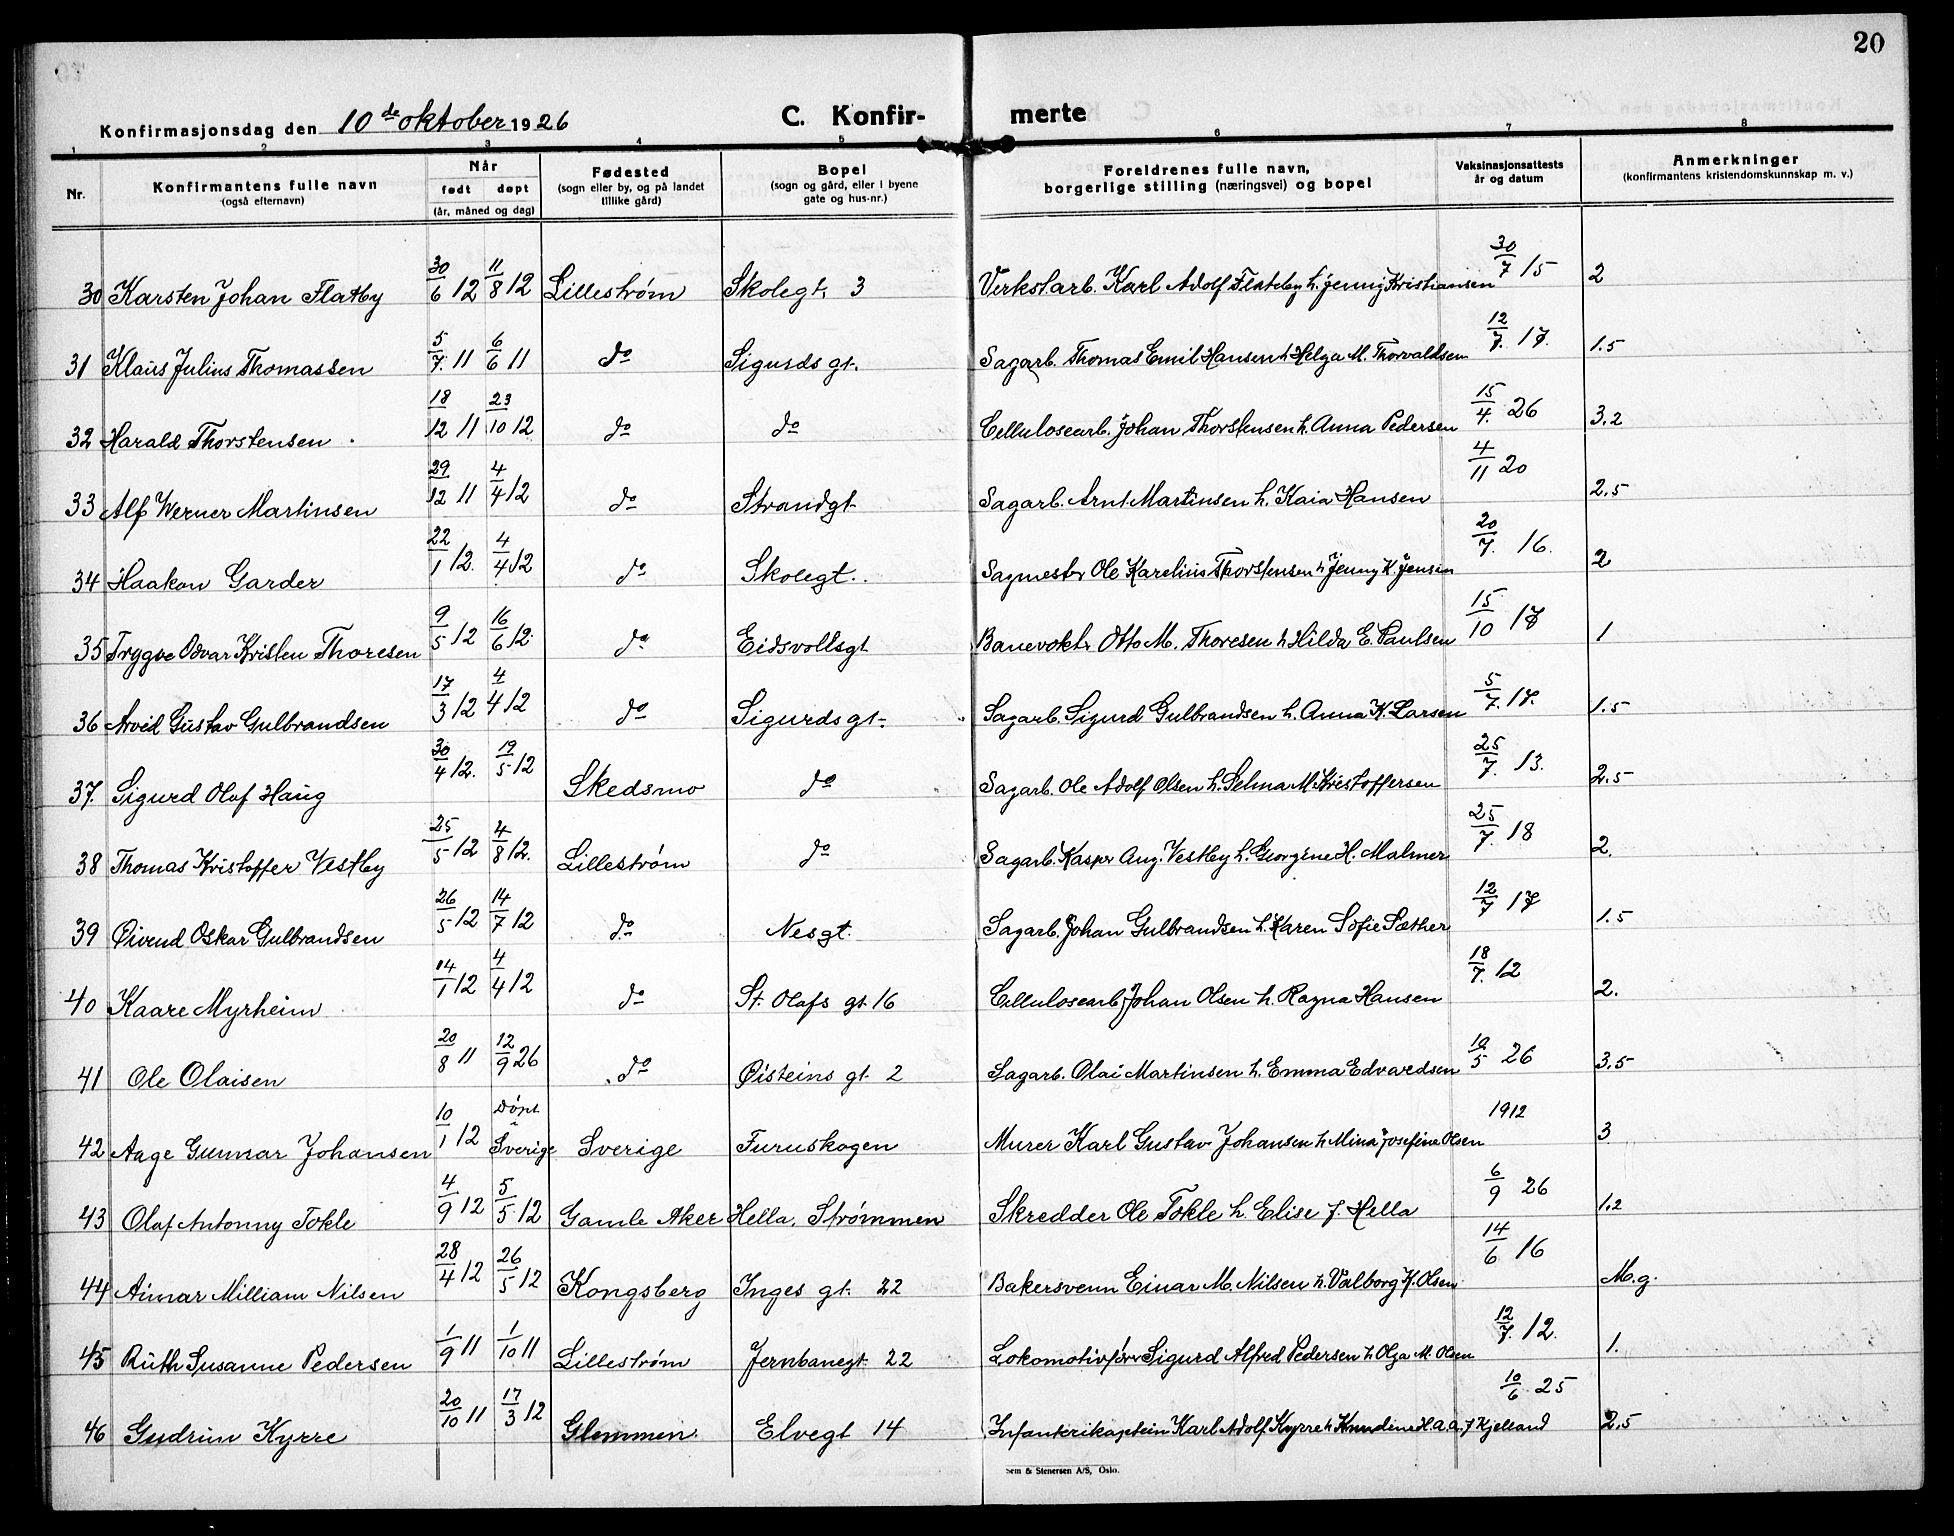 20
Konfirmasjonsdag den 10de oktober 1926 C. Konfir- merte
1 2 3 4 5 6 7 8
Nr. Konfirmantens fulle navn (også efternavn) Når født døpt (år, måned og dag) Fødested (sogn eller by, og på landet tillike gård) Bopel (sogn og gård, eller i byene gate og hus-nr.) Foreldrenes fulle navn, borgerlige stilling (næringsvei) og bopel Vaksinasjonsattests år og datum Anmerkninger (konfirmantens kristendomskunnskap m. v.)
30 Karsten Johan Flatby 30/6 12 11/8 12 Lillestrøm Skolegt. 3 Verkstarb. Karl Adolf Flateby h. Jenny Kristiansen 30/7 15 2
31 Klaus Julius Thomassen 5/7. 11 6/6 11 do Sigurds gt. Sagarb. Thomas Emil Hansen h Helga M. Thorvaldsen 12/7. 17. 1.5
32 Harald Thorstensen. 18/12 11 23/10 12 do do Cellulosearb. Johan Thorstensen h. Anna Pedersen 15/4. 26 3.2
33 Alf Werner Martinsen 29/12 11 4/4 12 do Strandgt. Sagarb. Arnt Martinsen h. Kaia Hansen 4/11 20 2.5
34 Haakon Garder 22/1 12. 4/4 12 do Skolegt. Sagmester Ole Karelius Thorstensen h Jenny K. Jensen 20/7. 16. 2
35 Trygve Odvar Kristen Thoresen 9/5 12 16/6 12. do Eidsvollsgt. Banevokt. Otto M. Thoresen h Hilda E. Paulsen 15/10 18 1
36 Arvid Gustav Gulbrandsen 17/3 12 4/4 12 do Sigurds gt. Sagarb. Sigurd Gulbrandsen h. Anna K. Larsen 5/7. 17. 1.5
37. Sigurd Olaf Haug 30/4 12. 19/5 12 Skedsmo do Sagarb. Ole Adolf Olsen h. Selma M. Kristoffersen 25/7. 13. 2.5
38 Thomas Kristoffer Vestby 25/5 12 4/8 12. Lillestrøm do Sagarb. Kasper Aug. Vestby h. Georgine H. Malmer 25/7. 18 2.
39 Øivend Oskar Gulbrandsen 26/5 12 14/7 12 do Nesgt. Sagarb. Johan Gulbrandsen h. Karen Sofie Sæther 12/7 17 1.5
40 Kaare Myrheim 14/1 12 4/4 12 do St. Olafs gt. 16 Cellulosearb. Johan Olsen h. Ragna Hansen 18/7. 12 2.
41 Ole Olaisen 20/8 11 12/9 26 do Øisteins gt. 2 Sagarb. Olai Martinsen h. Emma Edvardsen 10/5 26 3.5
42 Aage Gunnar Johansen 10/1 12 Døpt i Sverige Sverige Furuskogen Murer Karl Gustav Johansen h Mina Josefine Olsen 1912 3
43 Olaf Antonny Tokle 4/9 12 5/5 12 Gamle Aker Hella, Strømmen Skredder Ole Tokle h. Elise f. Hella 6/9 26 1.2
44 Aimar Milliam Nilsen 28/4 12 26/5 12 Kongsberg Inges gt. 22 Bakersvenn Einar M. Nilsen h. Valborg K. Olsen 14/6 16 M.g.
45 Ruth Susanne Pedersen 1/9 11 1/10 11 Lillestrøm Jernbanegt. 22 Lokomotivförer Sigurd Alfred Pedersen h Olga M. Olsen 12/7. 12. 1.
46 Gudrun Kyrre 20/10 11 17/3 12 Glemmen Elvegt 14 Infanterikaptein Karl Adolf Kyrre h Knudine H.a.a. f Kjelland 10/6. 25 2.5
Sem & Stenersen A/S, Oslo.